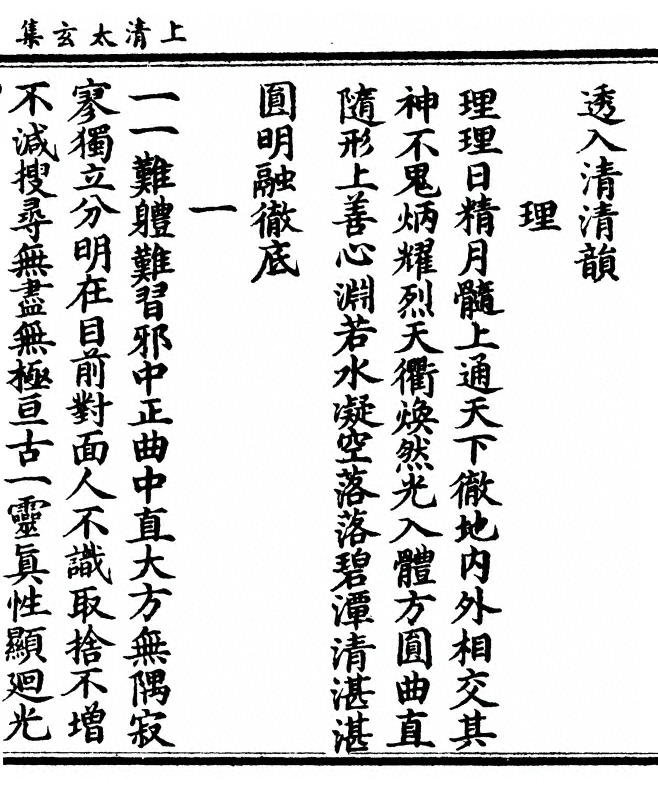 上清太玄集
透入清清韻
理
理理日精月髓上通天下徹地内外相交其
神不鬼炳耀烈天衢煥然光入體方圓曲直
隨形上善心淵若水凝空落落碧潭清湛湛
圓明融徹底
一
一一難體難習邪中正曲中直大方無隅寂
寥獨立分明在目前對面人不識取捨不增
不減搜尋無盡無極亘古一靈眞性顯迴光